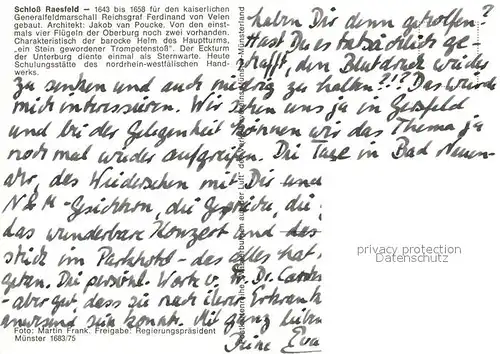 Schloß Raesfeld – 1643 bis 1658 für den kaiserlichen
Generalfeldmarschall Reichsgraf Ferdinand von Velen
gebaut. Architekt: Jakob van Poucke. Von den einst-
mals vier Flügeln der Oberburg noch zwei vorhanden.
Charakteristisch der barocke Helm des Hauptturms,
„ein Stein gewordener Trompetenstoß". Der Eckturm
der Unterburg diente einmal als Sternwarte. Heute
Schulungsstätte des nordrhein-westfälischen Hand-
werks.
haben Dir denn geholfen?
Hast Du es tatsächlich ge-
schafft, den Blutdruck wieder
zu senken und auch niedrig zu halten?!? Das würde
mich interessieren. Wir sehen uns ja in
und bei der Gelegenheit können wir das Thema ja
noch mal wieder aufgreifen. Die Tage in Bad Neuen-
ahr, das Wiedersehen mit Dir und
die Gespräche, die
das wunderbare Konzert und das
stück im Parkhotel - das alles hat
getan. Die persönl. Worte v. Dr.
- aber gut, dass sie nach ihrer Erkrank
anwesend sein konnte. Mit ganz lieben
Deine Eva
Foto: Martin Frank. Freigabe: Regierungspräsident
Münster 1683/75
privacy protection
Datenschutz